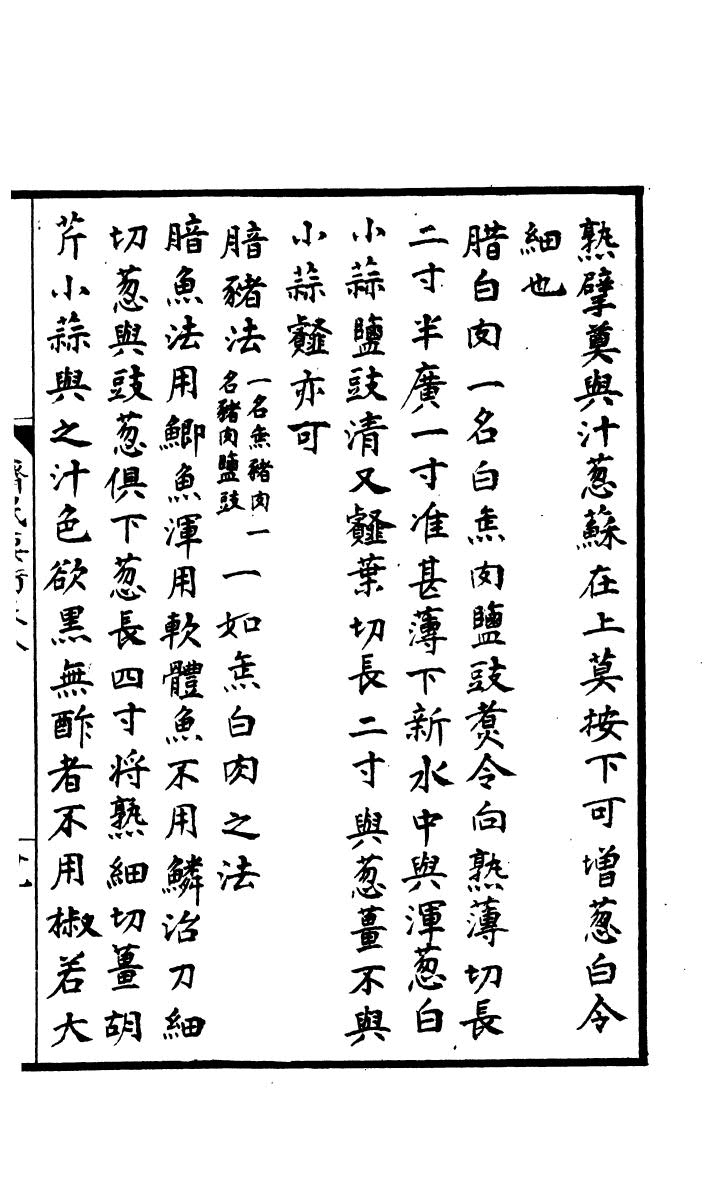 熟擘奠與汁葱蘇在上莫按下可增葱白令
細也
腊白肉一名白缹肉鹽豉煑令向熟薄切長
二寸半廣一寸准甚薄下新水中與渾葱白
小蒜鹽豉清又䪥葉切長二寸與葱薑不與
小蒜䪥亦可
腤豬法一名缹豬肉一名豬肉鹽豉一如缹白肉之法
腤魚法用鯽魚渾用軟體魚不用鱗治刀細
切葱與豉葱俱下葱長四寸将熟細切薑胡
芹小蒜與之汁色欲黒無酢者不用椒若大